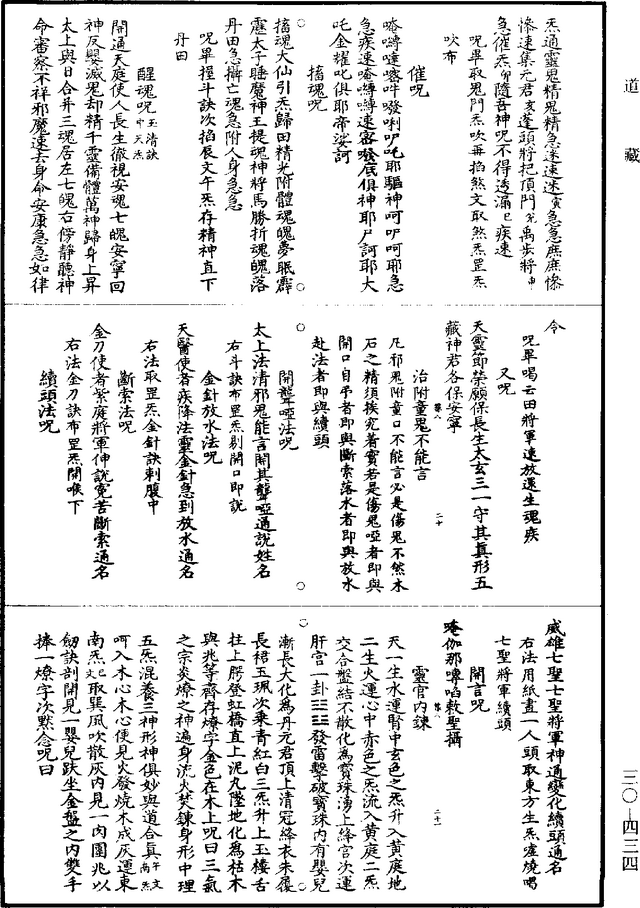 道藏
三〇—四三四
炁通靈鬼精鬼精急速速迷寅急急庶庶慘
慘速集元君亥蓬頭將把頂門允禹步將申
急催炁卯隨吾神呪不得透漏巳疾速
呪畢取鬼門炁吹再掐煞文取煞炁罡炁
吹布
催呪
唵嚩噠咯吽潑唎吖吒耶驅神呵吖呵耶急
急疾速唵嚩嚩速客唵底俱神耶尸訶耶大
吒金耀叱俱耶帝娑訶
搐魂呪
搐魂大仙引炁歸田精光附體魂魄夢眠霹
靂太子睡魔神王提魂神將馬勝折魂魄落
丹田急擒亡魂急附人身急急
呪畢握斗訣次掐辰文午炁存精神直下
丹田
醒魂呪玉清訣中天炁
開通天庭使人長生徹視安魂七魄安寧回
神反嬰滅鬼却精千靈備體萬神歸身上昇
太上與日合并三魂居左七魄右傍靜聽神
命審察不祥邪魔速去身命安康急急如律
令
呪畢喝云田將軍速放還生魂疾
又呪
天靈節榮願保長生太玄三一守其真形五
藏神君各保安寧
治附童鬼不能言
凡邪鬼附童口不能言必是傷鬼不然木
石之精須挨究着實若是傷鬼啞者即與
開口自弔者即與斷索落水者即與放水
赴法者即與續頭
開聾啞法呪
太上法清邪鬼能言開其聾啞通說姓名
右斗訣布罡炁剔開口即說
金針放水法呪
天醫使者疾降法靈金針急到放水通名
右法取罡炁金針訣刺腹中
斷索法呪
金刀使者紫庭將軍伸說冤苦斷索通名
右法金刀訣布罡炁開喉下
續頭法呪
威雄七聖七聖將軍神通變化續頭通名
右法用紙畫一人頭取東方生炁噓燒喝
七聖將軍續頭
開言呪
唵伽那啤啗敕聖攝
靈官內鍊
天一生水運腎中玄色之炁升入黃庭地
二生火運心中赤色之炁流入黃庭二炁
交合盤結不散化為寶珠湧上絳宮次運
肝宮一卦☳☳發雷擊破寶珠內有嬰兒
漸長大化為丹元君頂上清冠絳衣朱履
長裙玉珮次乘青紅白三炁升上玉樓舌
柱上腭登虹橋直上泥丸墜地化為枯木
與兆等齊存燎字金色在木上呪曰三氣
之宗炎燎之神遍身流火焚鍊身形中理
五炁混養三神形神俱妙與道合真午文南炁
呵入木心木心便見火發燒木成灰運東
南炁巳文取巽風吹散灰內見一肉團兆以
劒訣剖開見一嬰兒趺坐金盤之內雙手
捧一燎字次默念呪曰